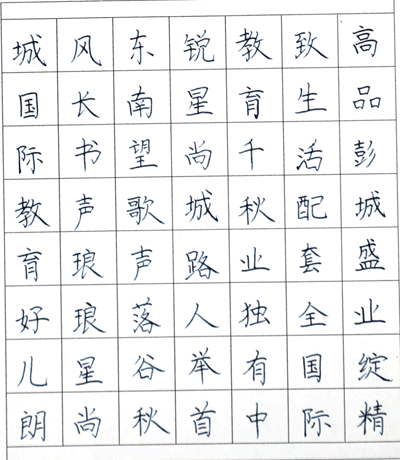 高品彭城盛业绽精
致生活配套全国际
教育千秋业独有中
锐星尚城路人举首
东南望歌声落谷秋
风长书声琅琅星尚
城国际教育好儿朗